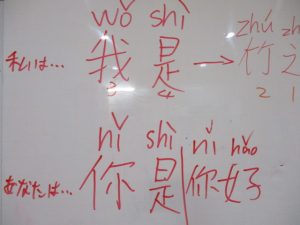 wǒ shì zhú zh
私は… 我 是 → 竹 之
3 4 2 1
nǐ shì nǐ hǎo
あなたは… 你 是 | 你好